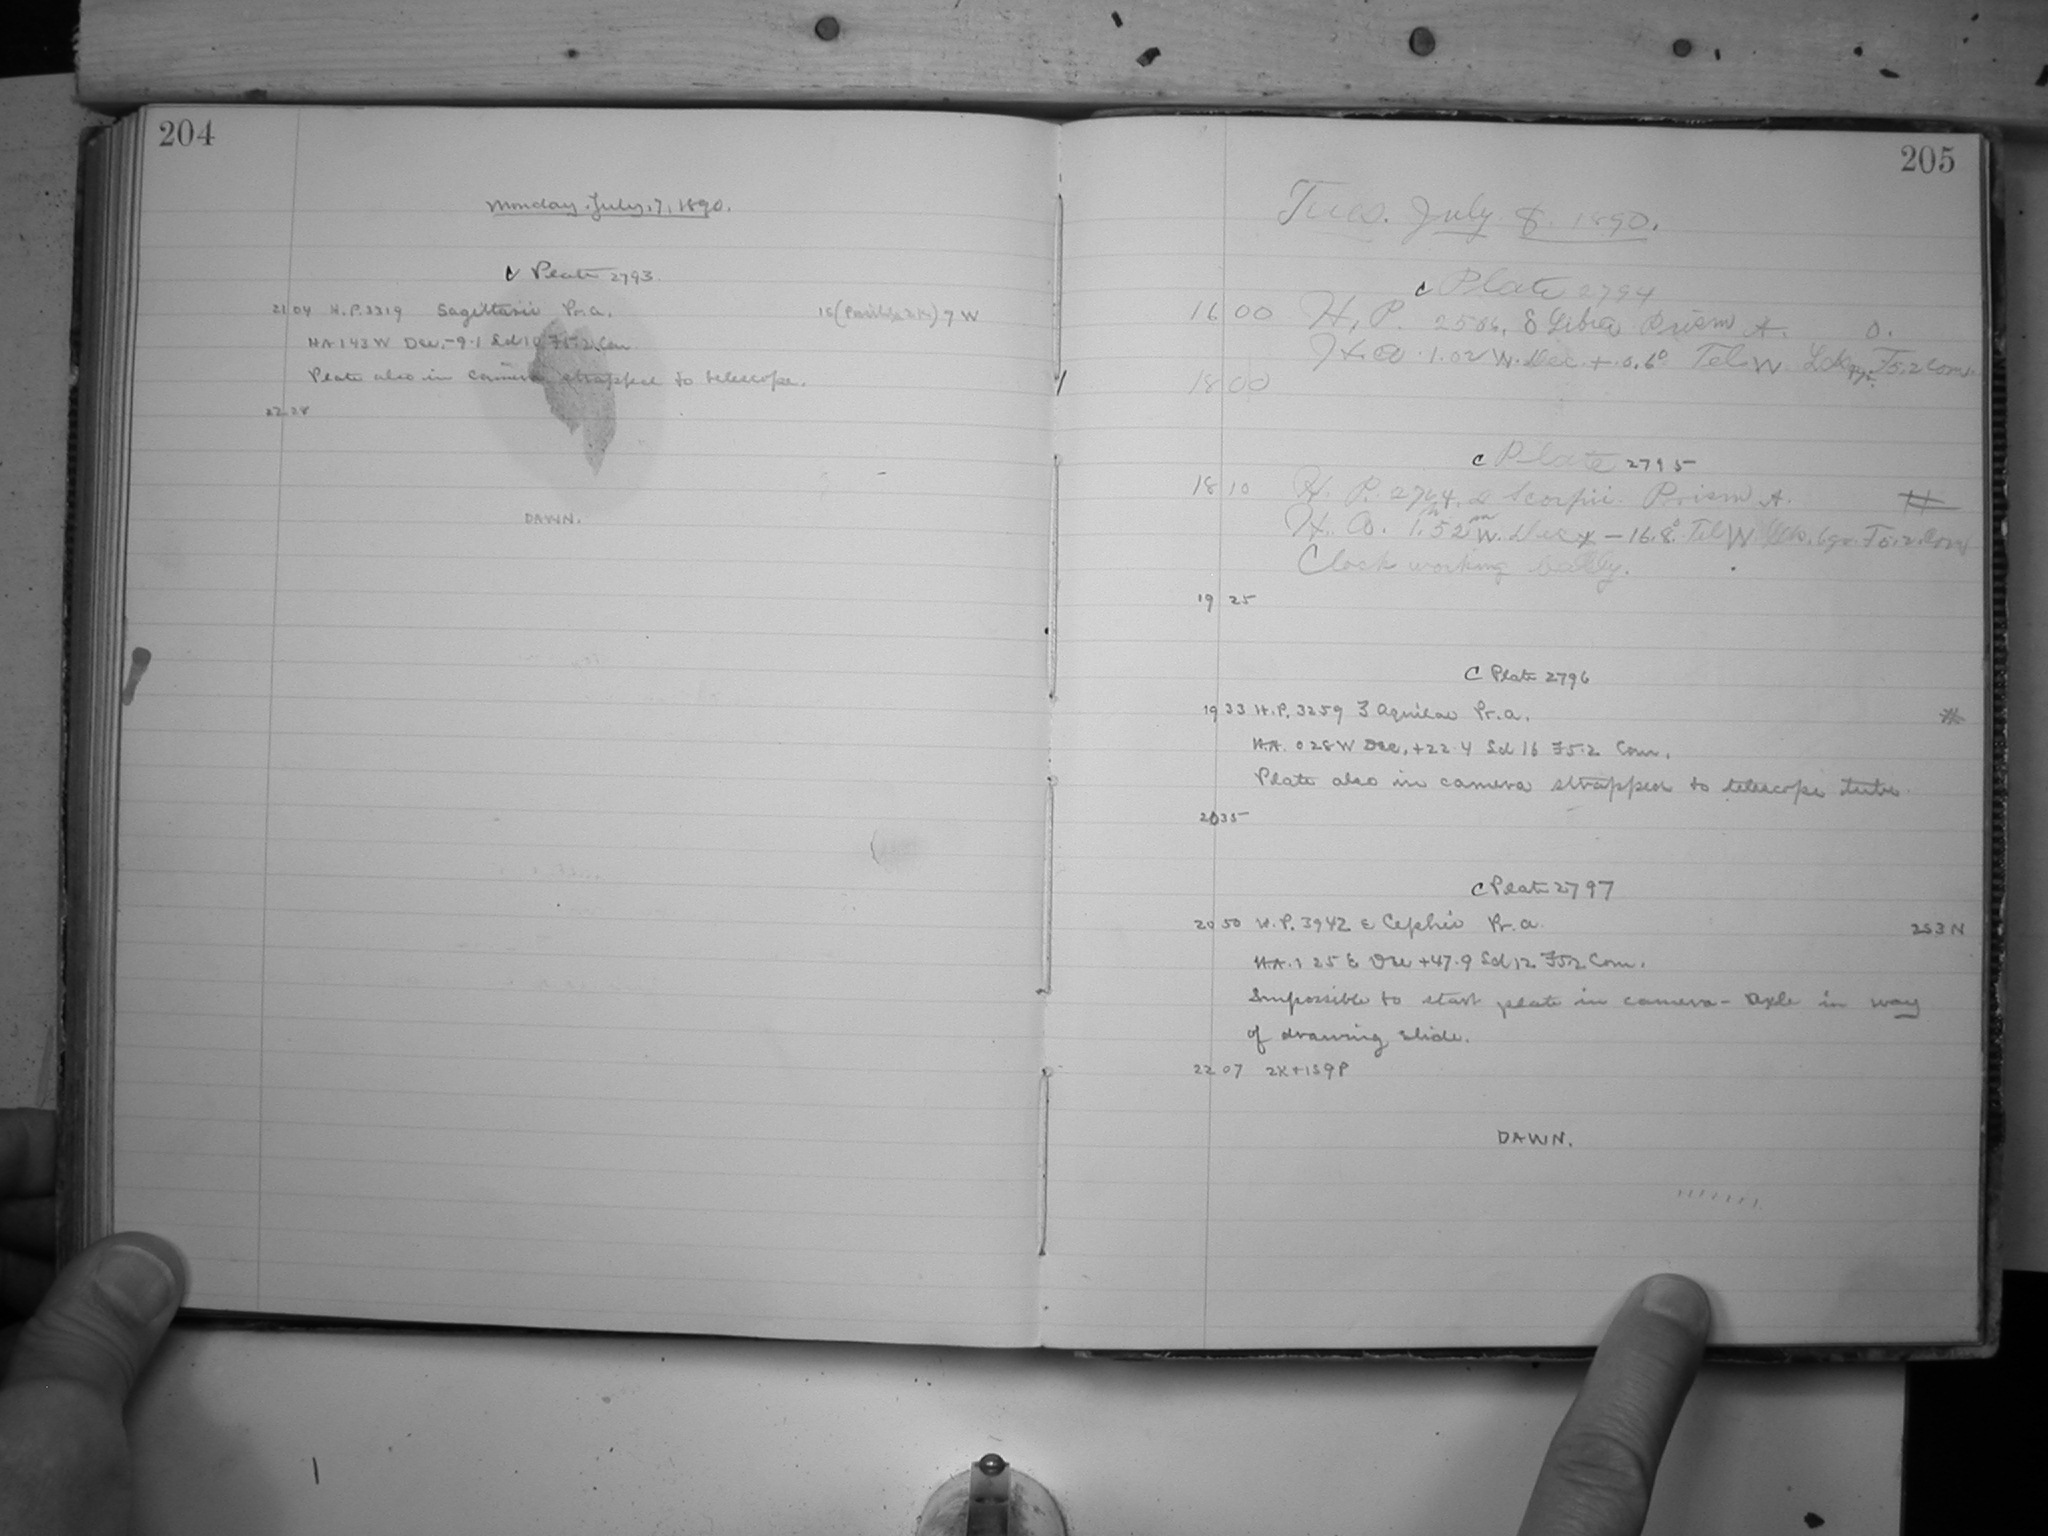 204
Monday. July. 7, 1890.
C Plate 2793
21 04 H.P. 3319 Sagittarii Pr. a. 7 W
HA 1 43 W Dec. -9.1 Sd 10 F5.2 Com
Plate also in camera strapped to telescope.
22 28
DAWN.
205
Tues. July 8. 1890.
C Plate 2794
16 00 H. P. 2506. δ Libra Prism A. 0.
H. A. 1.02 W. Dec. + 0.6° Tel. W. F5.2 Com.
18 00
C Plate 2795
18 10 H. P. 2764. Scorpii. Prism A.
H. A. 1h.52m W. Dec - 16.8° Tel W. F5.2. Com
Clock working badly.
19 25
C Plate 2796
19 33 H.P. 3259 ζ Aquilae Pr. a.
H.A. 0 28 W Dec. +22.4 Sd 16 F5.2 Com.
Plate also in camera strapped to telescope tube.
20 35
C Plate 2797
20 50 H.P. 3942 ε Cephei Pr. a. 253 N
H.A. 1 25 E Dec +47.9 Sd 12 F5.2 Com.
Impossible to start plate in camera - axle in way
of drawing slide.
22 07 2K+159P
DAWN.